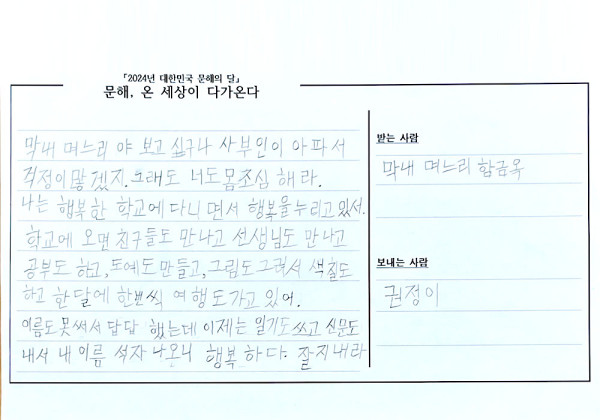 「2024년 대한민국 문해의 달」
문해, 온 세상이 다가온다
막내 며느리 야 보고 싶구나 사부인이 아파서
걱정이 많겠지. 그래도 너도 몸조심 해라.
나는 행복한 학교에 다니면서 행복을 누리고 있서.
학교에 오면 친구들도 만나고 선생님도 만나고
공부도 하고, 도예도 만들고, 그림도 그려서 색칠도
하고 한달에 한번씩 여행도가고 있어.
이름도 못써서 답답 했는데 이제는 일기도 쓰고 신문도
내서 내 이름 석자 나오니 행복하다. 잘지내라
받는 사람
막내 며느리 함금옥
보내는 사람
권정이